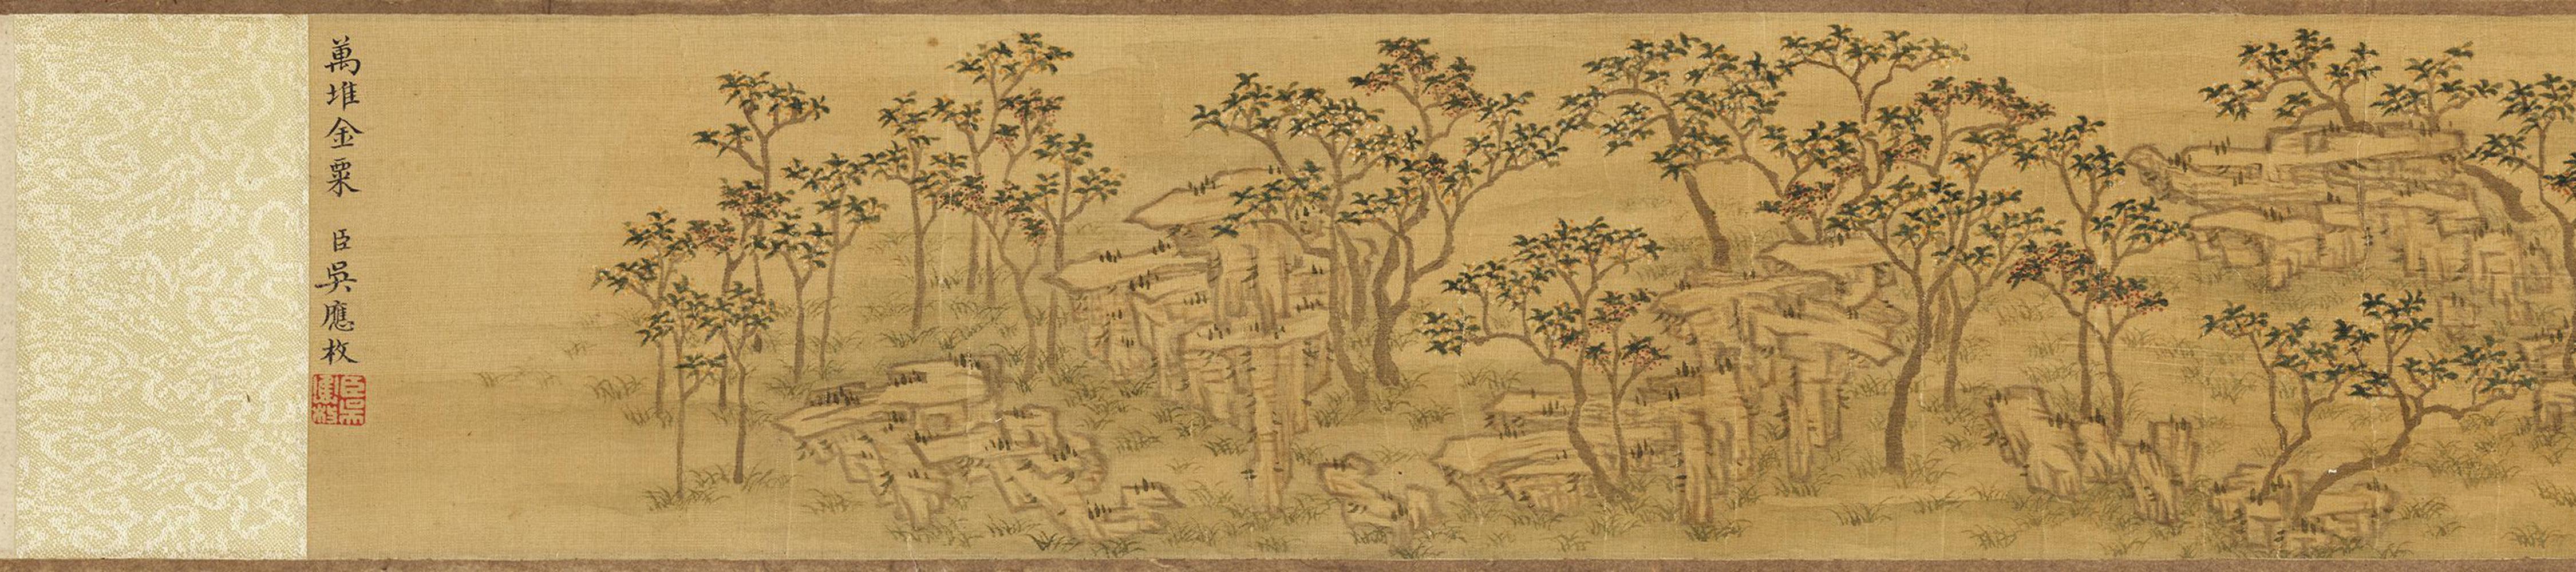 萬堆金粟　臣吳應枚
臣吳
應枚